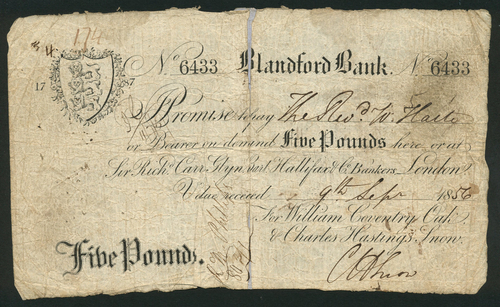 174
17 47
No. 6433 Blandford Bank. No. 6433
I Promise to pay The Revd. W.
or Bearer on demand Five Pounds here or at
Sir Richd. Carr Glyn Bart Hallifax & Co. Bankers London
Value received 9th Sepr 1856
For William Coventry Oak
& Charles Hastings Snow.
Five Pounds.
C H Snow